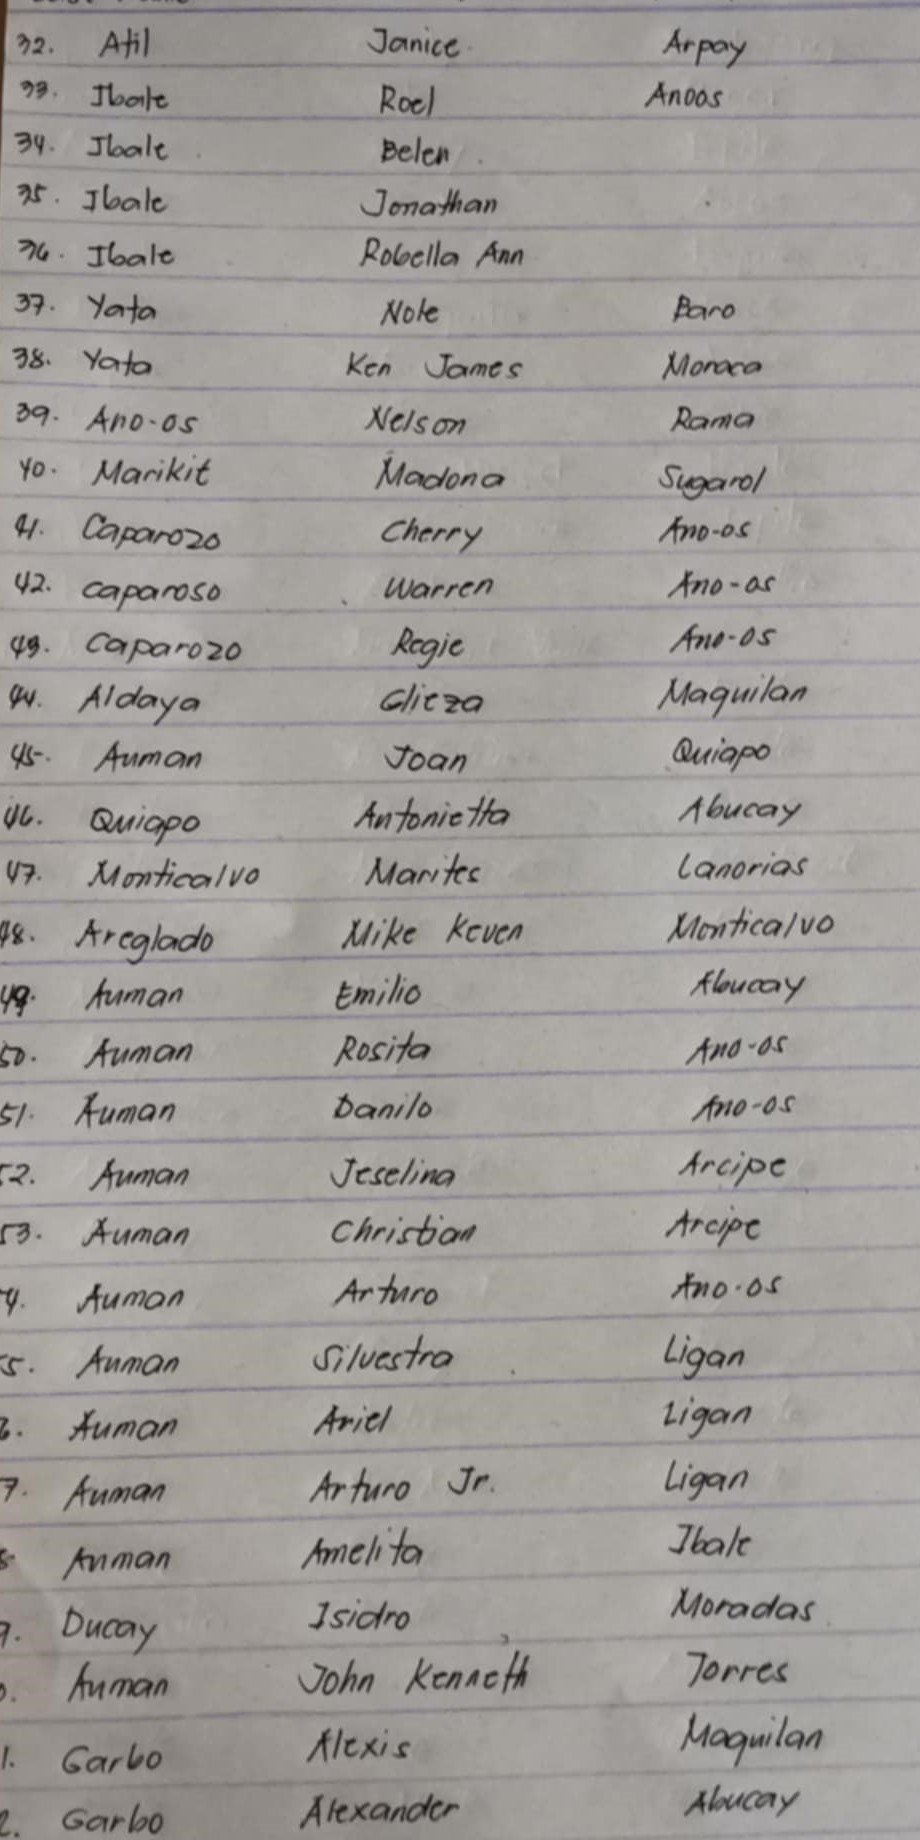 32. Atil Janice Arpay
33. Ibale Roel Anoos
34. Ibale Belen
35. Ibale Jonathan
36. Ibale Robella Ann
37. Yata Nole Baro
38. Yata Ken James Moraca
39. Ano-os Nelson Rama
40. Marikit Madona Sugarol
41. Caparozo Cherry Ano-os
42. caparoso Warren Ano-os
43. Caparozo Regie Ano-os
44. Aldaya Glieza Maquilan
45. Auman Joan Quiapo
46. Quiapo Antonietta Abucay
47. Monticalvo Marites Lanorias
48. Areglado Mike Keven Monticalvo
49. Auman Emilio Abucay
50. Auman Rosita Ano-os
51. Auman Danilo Ano-os
52. Auman Jeselina Arcipe
53. Auman Christian Arcipe
4. Auman Arturo Ano-os
5. Auman Silvestra Ligan
6. Auman Ariel Ligan
7. Auman Arturo Jr. Ligan
8. Auman Amelita Ibale
9. Ducay Isidro Moradas
0. Auman John Kenneth Torres
1. Garbo Alexis Maquilan
2. Garbo Alexander Abucay